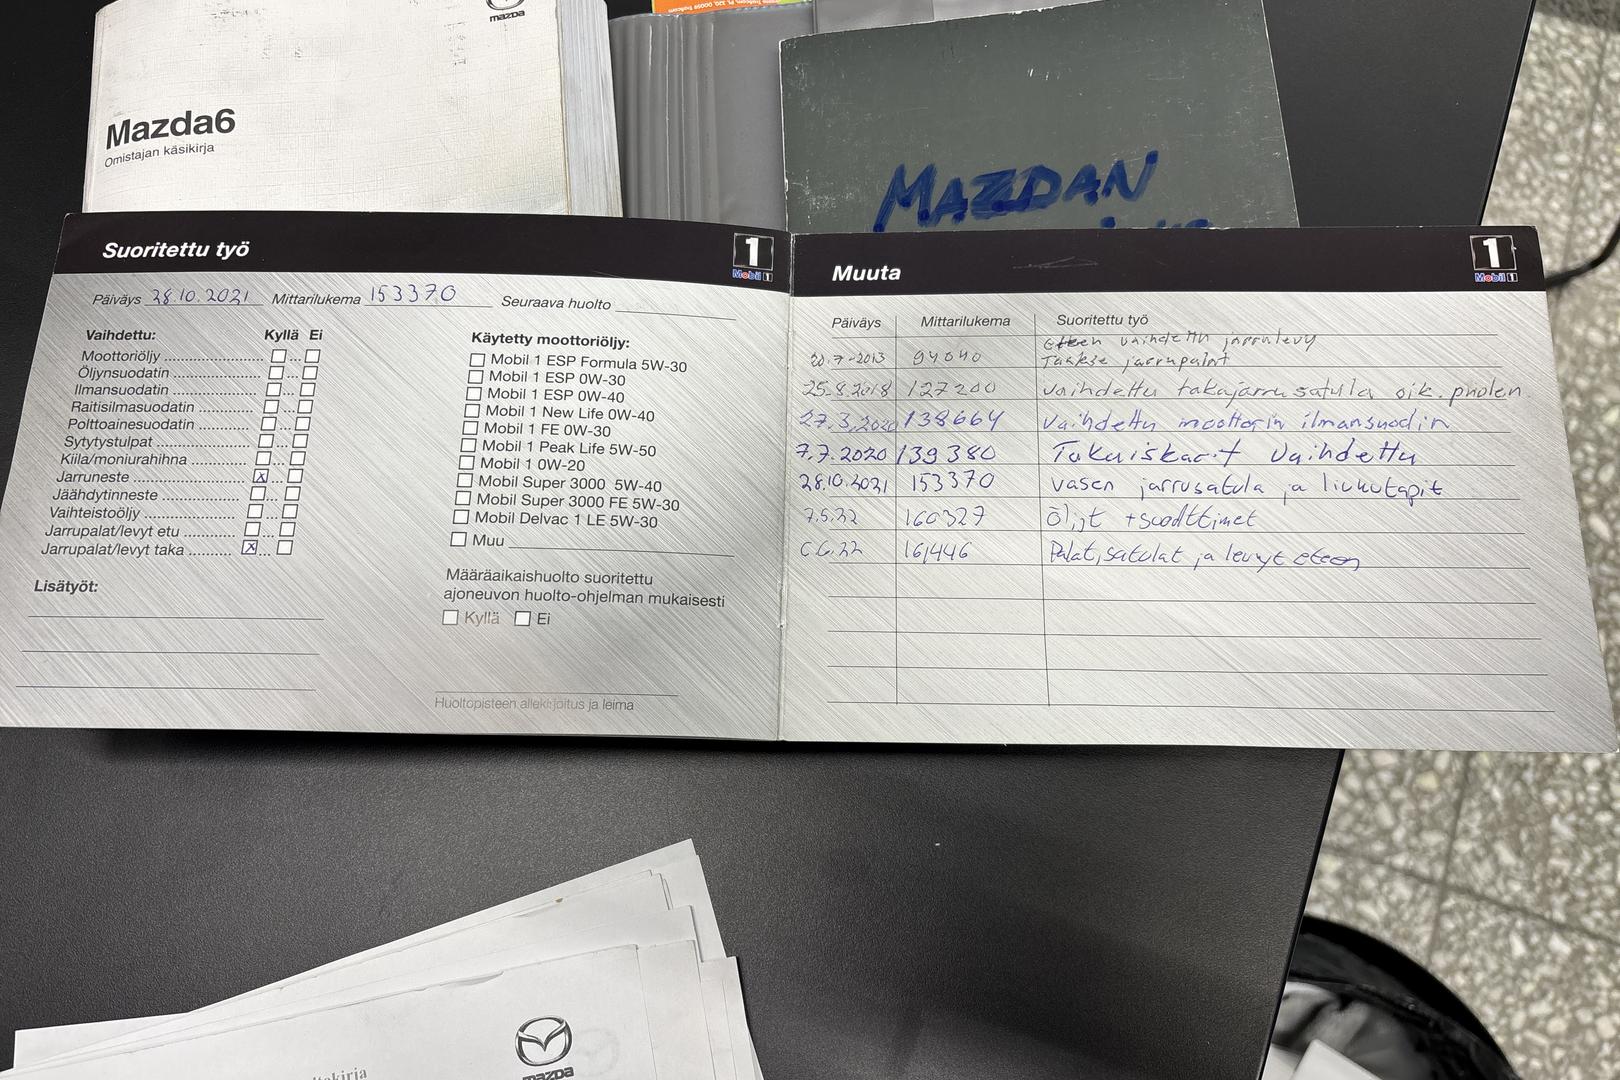 mazda
Mazda6
Omistajan käsikirja
MAZDAN
Suoritettu työ
1
Mobil 1
Päiväys 28.10.2021 Mittarilukema 153370 Seuraava huolto
Vaihdettu: Kyllä Ei
Moottoriöljy
Öljynsuodatin
Ilmansuodatin
Raitisilmasuodatin
Polttoainesuodatin
Sytytystulpat
Kiila/moniurahihna
Jarruneste x
Jäähdytinneste
Vaihteistoöljy
Jarrupalat/levyt etu
Jarrupalat/levyt taka x
Lisätyöt:
Käytetty moottoriöljy:
Mobil 1 ESP Formula 5W-30
Mobil 1 ESP 0W-30
Mobil 1 ESP 0W-40
Mobil 1 New Life 0W-40
Mobil 1 FE 0W-30
Mobil 1 Peak Life 5W-50
Mobil 1 0W-20
Mobil Super 3000 5W-40
Mobil Super 3000 FE 5W-30
Mobil Delvac 1 LE 5W-30
Muu
Määräaikaishuolto suoritettu
ajoneuvon huolto-ohjelman mukaisesti
Kyllä Ei
Huoltopisteen allekirjoitus ja leima
Muuta
1
Mobil 1
Päiväys Mittarilukema Suoritettu työ
vaihdettu jarrulevy
20.7-2013 94040 Taakse jarrupalat
25.8.2018 127200 vaihdettu takajarrusatula oik. puolen
27.3.2020 138664 vaihdettu moottorin ilmansuodin
7.7.2020 139380 Takaiskarit vaihdettu
28.10.2021 153370 vasen jarrusatula ja liukutapit
7.5.22 160327 Öljyt + suodttimet
6.6.22 161446 Palat, satulat ja levyt eteen
mazda